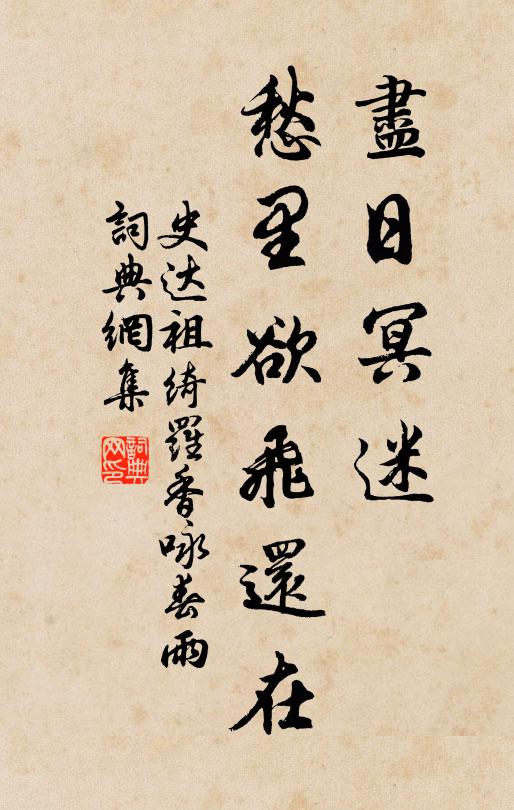 盡日冥迷
愁里欲飛還在
史达祖綺羅香咏春雨
詞典網集
詞典
网印